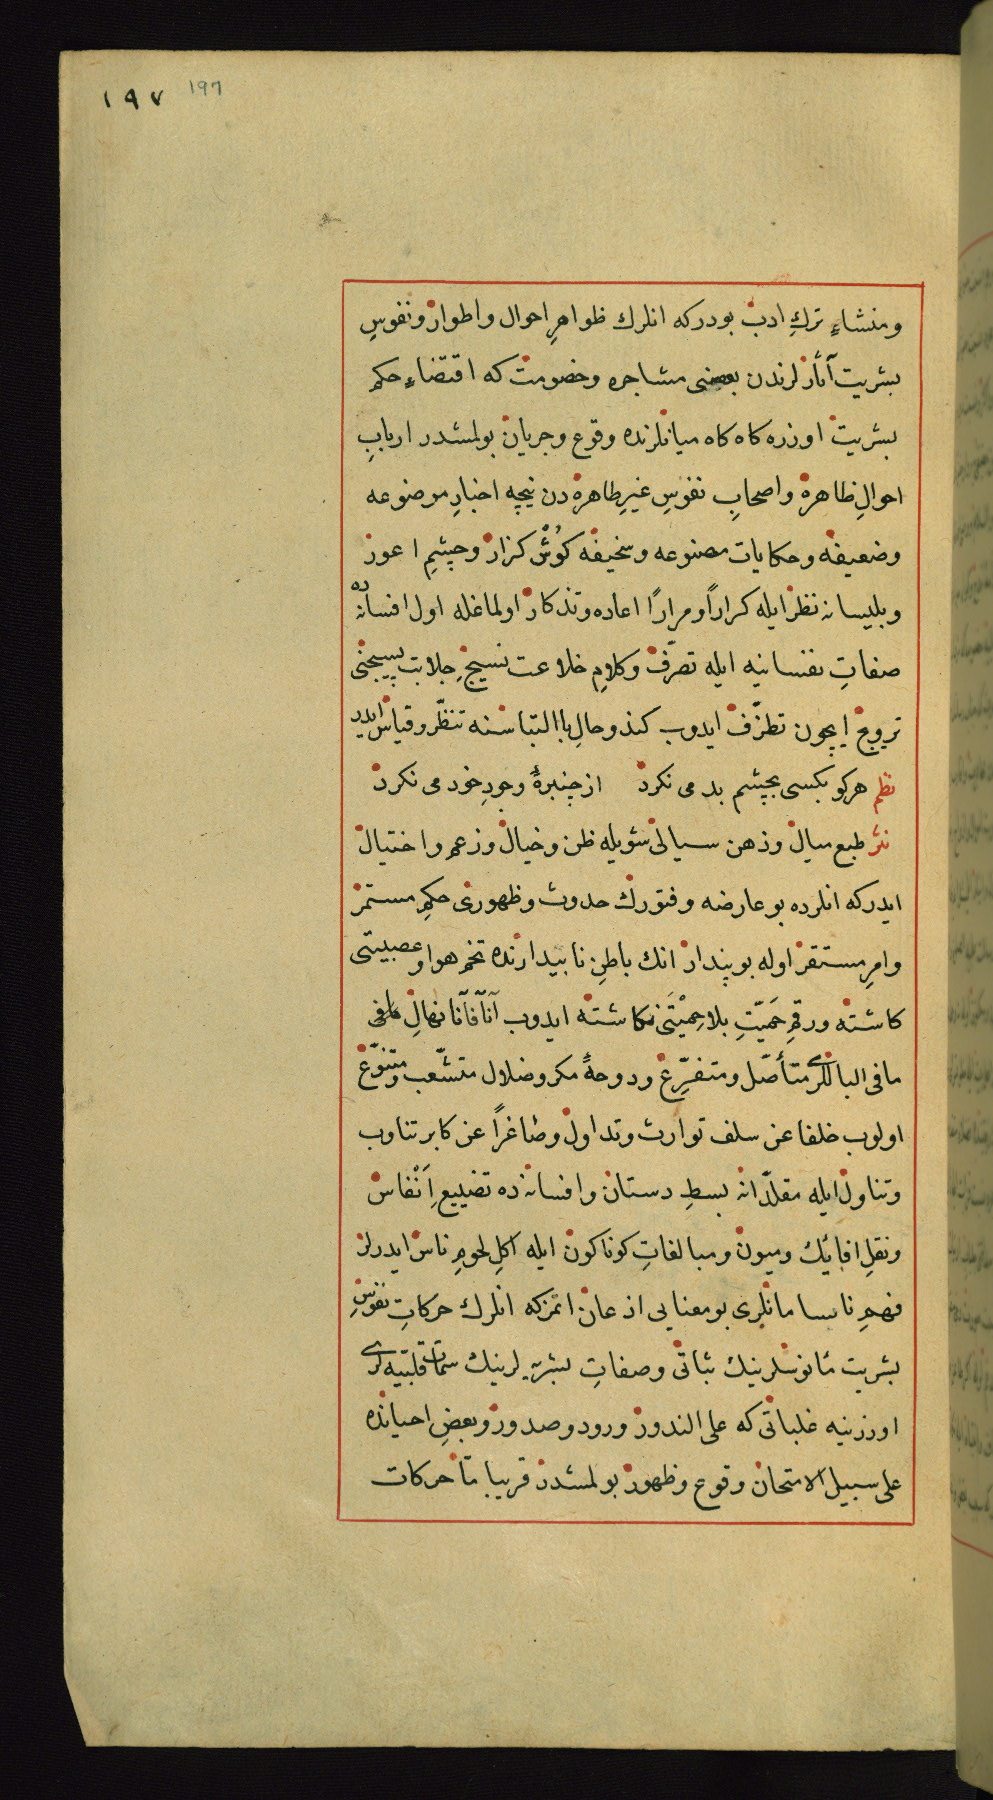 ١٩٧ ١٩٦
ومنشاءِ تركِ ادب بودركه انلرك ظواهرِ احوال واطوار ونفوسِ
بشريت آثارلرندن بعضى مشاجره وخصومت كه اقتضاءِ حكم
بشريت اوزره كاه كاه ميانلرنده وقوع وجريان بولمشدر اربابِ
احوالِ ظاهره واصحابِ نفوسِ غيرِ طاهره دن نيچه اخبارِ موضوعه
وضعيفه وحكايات مصنوعه وسخيفه كوُشْ كزار وچشمِ اعور
وبليسانه نظر ايله كراراً ومراراً اعاده وتذكار اولماغله اول افسانه ده
صفاتِ نفسانيه ايله تصرّف وكلامِ خلاعت نسيجِ جلابت پسيجنى
ترويج ايچون تطرّف ايدوب كندوحالِ باالتباسنه تنظّر وقياس ايدر
نظم هركو بكسى بچشم بد مى نكرد از چنبرهٔ وجودِ خود مى نكرد
نثر طبع ميال وذهن سيالى شويله ظن وخيال وزعم واختيال
ايدركه انلرده بوعارضه وفتورك حدوث وظهورى حكمِ مستمر
وامرِ مستقر اوله بوپندار انك باطنِ نابيدارنده تخم هوا وعصبيتى
كاشته ورقمِ حَميّتِ بلاحِميْتَنى نكاشته ايدوب آناً فآناً نهالِ
مافى الباللرى متأصّل ومتفرّع ودوحهٔ مكر وضلال متشعّب ومتنوّع
اولوب خلفا عن سلف توارث وتداول وصاغراً عن كابر تناوب
وتناول ايله مقلّدانه بسطِ دستان وافسانه ده تضييع اَنْفاس
ونقلِ افايك وميون ومبالغاتِ كوناكون ايله اكلِ لحومِ ناس ايدرلر
فهمِ نابسامانلرى بومعنايى اذعان اتمزكه انلرك حركاتِ نفوسِ
بشريت مأنوسلرينك ثباتى وصفاتِ بشريه لرينك سمات قلبيه لرى
اوزرينه غلباتى كه على الندور ورود وصدور وبعضِ احيانده
على سبيل الامتحان وقوع وظهور بولمشدر قريبا مّا حركات